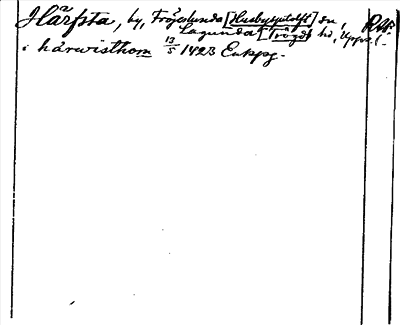 Hårfsta, by, Fröslunda [Husbysjutolft] sn, RW.
Lagunda [Trögd] hd, Uppl.
i hårwisthom 13/5 1423 Enkpg.